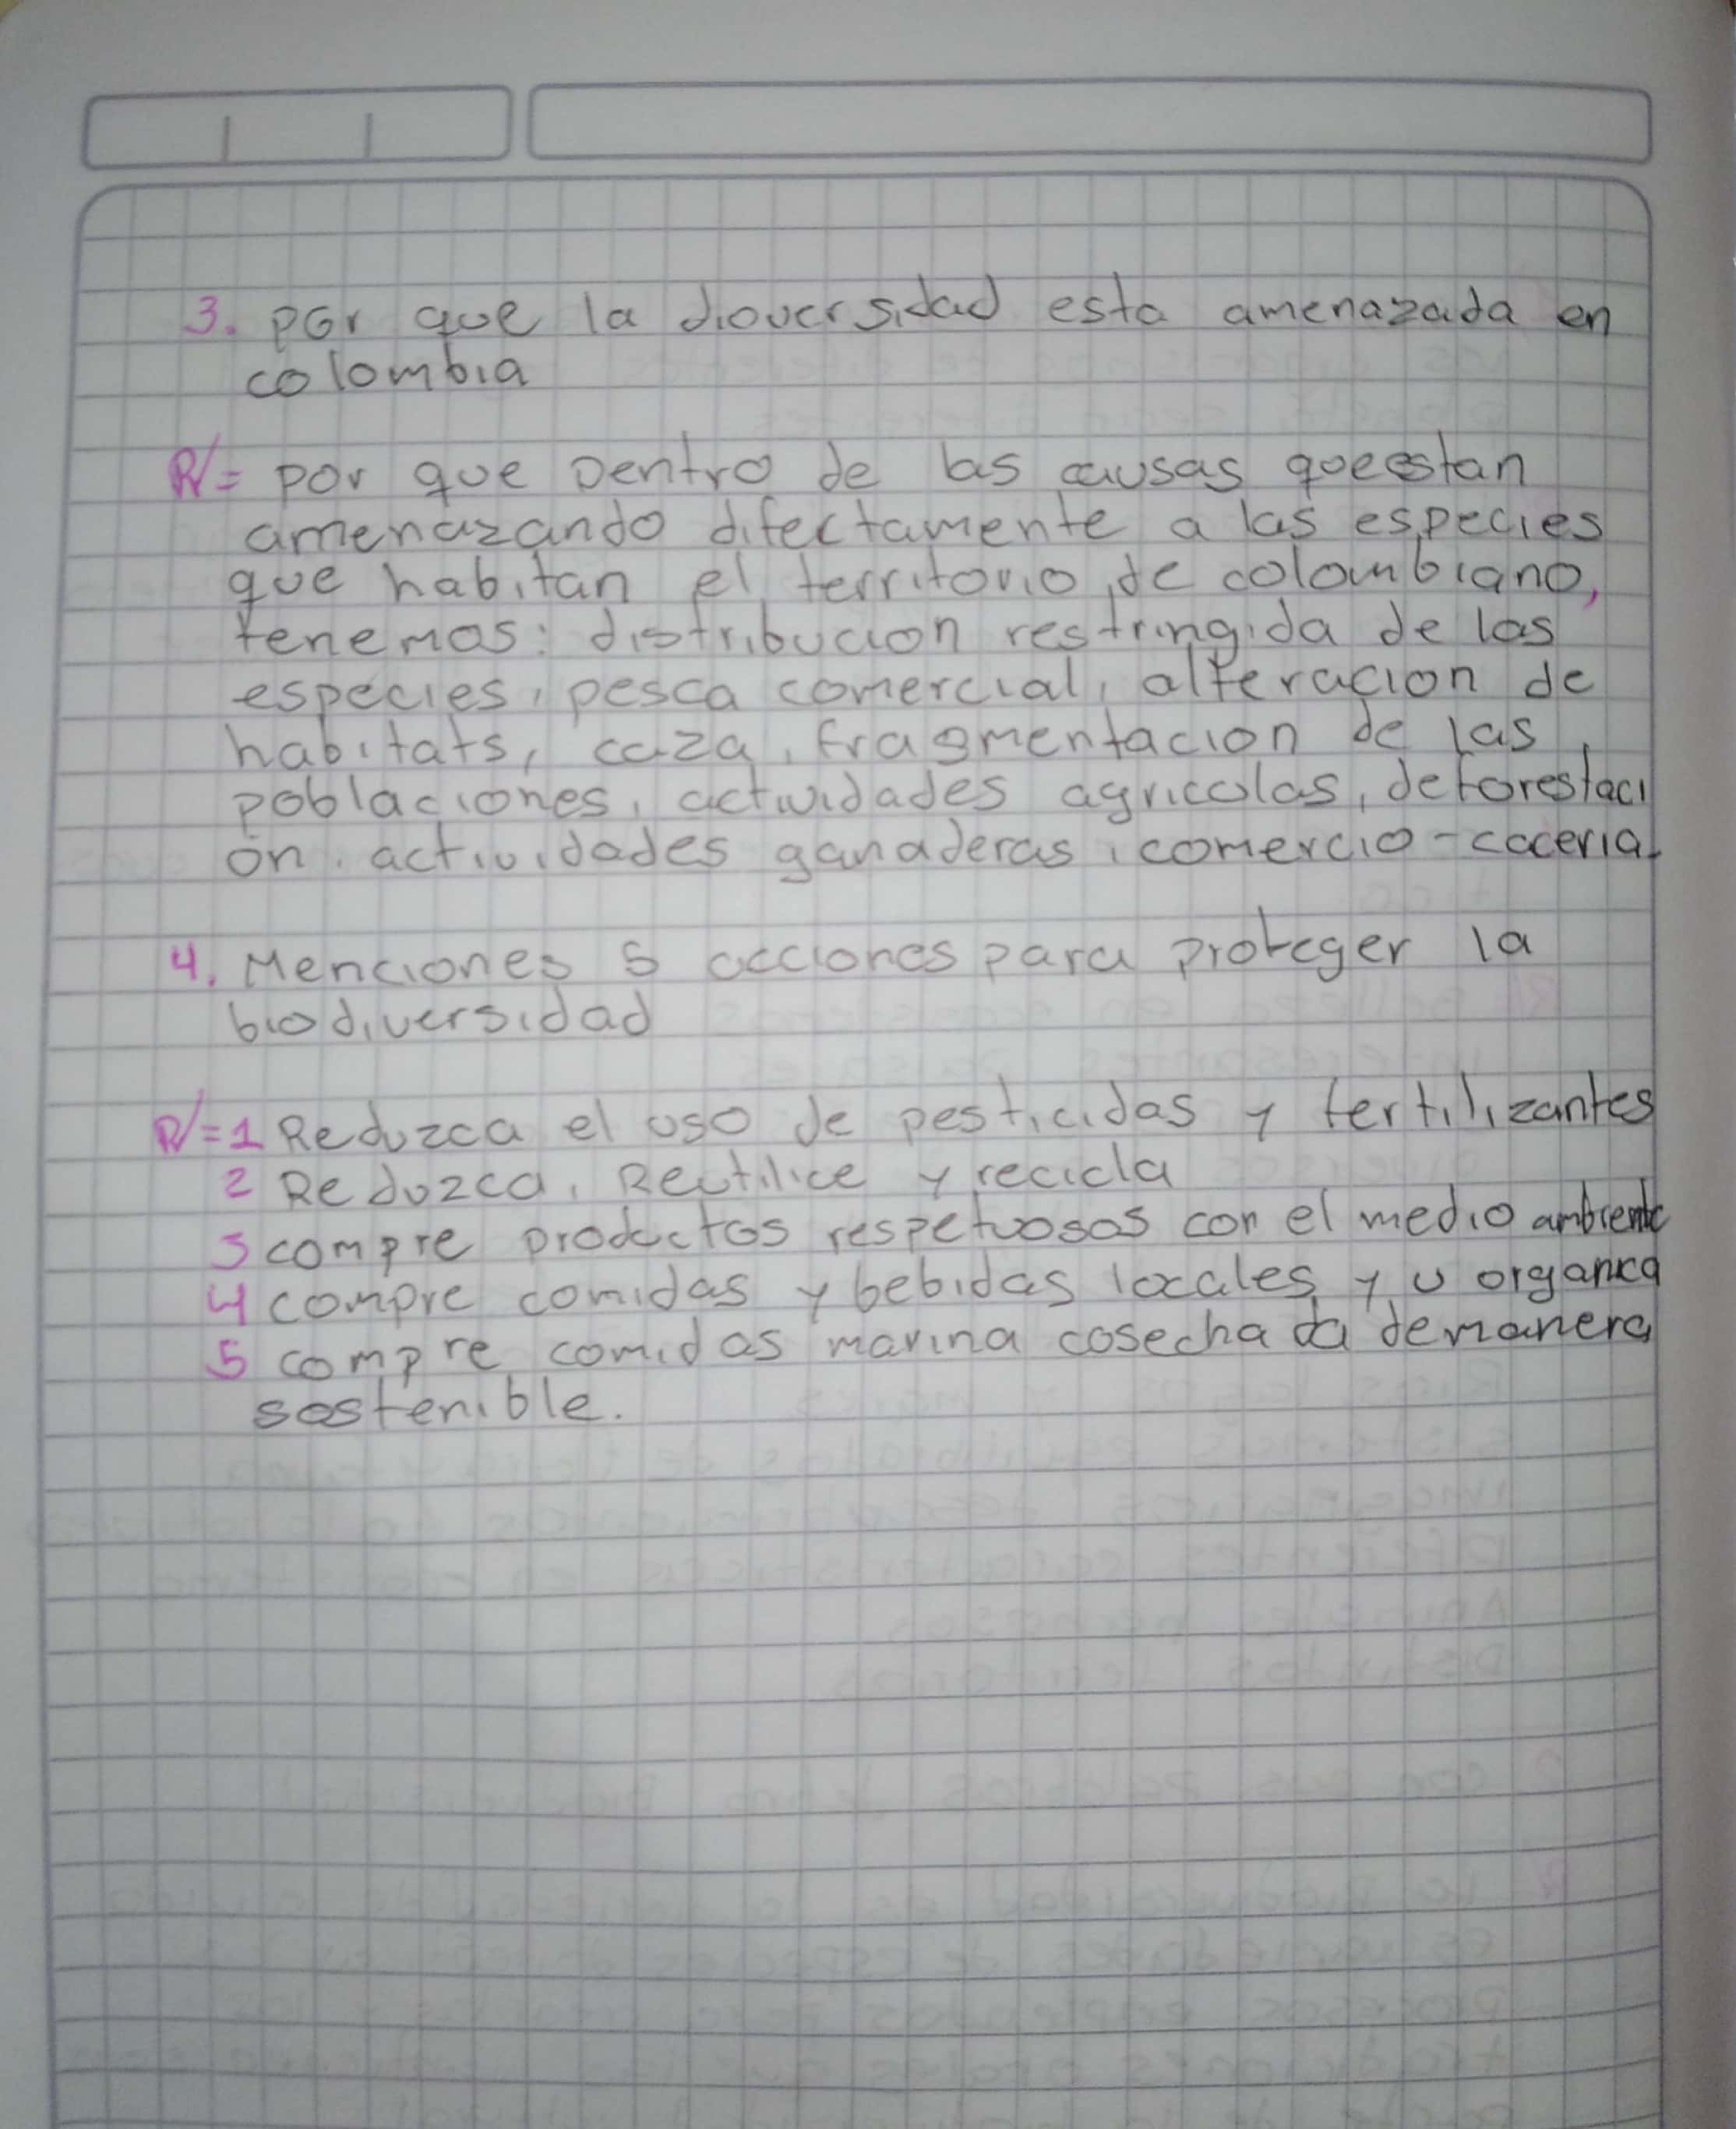 3. por que la dioversidad esta amenazada en
colombia
R/= por que Dentro de las causas que estan
amenazando difectamente a las especies
que habitan el territorio de colombiano,
tenemos: distribucion restringida de las
especies, pesca comercial, alteracion de
habitats, caza, fragmentacion de las
poblaciones, actividades agricolas, deforestaci
on, actividades ganaderas, comercio - caceria
4. Menciones 5 acciones para proteger la
biodiversidad
R/= 1 Reduzca el uso de pesticidas y fertilizantes
2 Reduzca, Reutilice y recicla
3 compre productos respetuosos con el medio ambiente
4 compre comidas y bebidas locales y u organica
5 compre comidas marina cosechada demanera
sostenible.